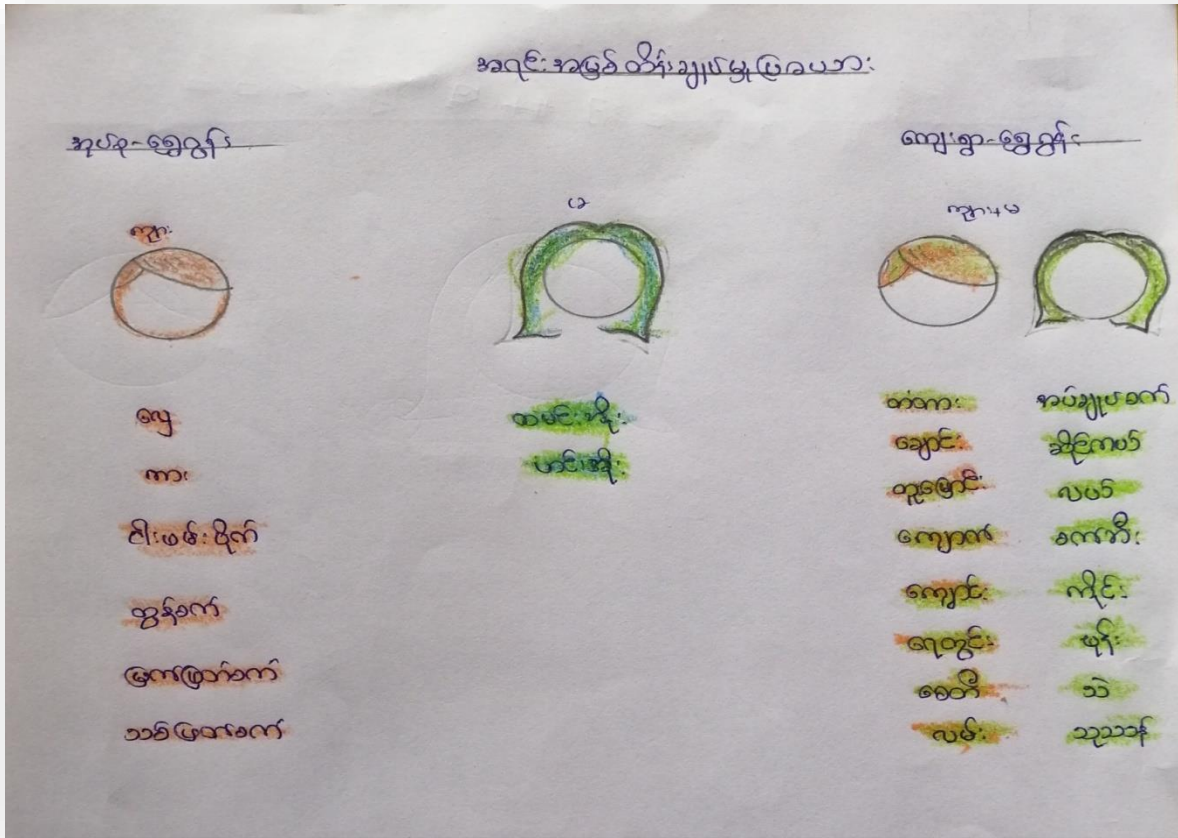 အရင်းအမြစ်ထိန်းချုပ်မှုပြဇယား
အုပ်စု-ရွှေဂွန်း
ကျေးရွာ-ရွှေဂွန်း
ကျား
မ
ကျား+မ
လှေ
ကား
ငါးဖမ်းပိုက်
ထွန်စက်
မြက်ဖြတ်စက်
သစ်ဖြတ်စက်
ထမင်းအိုး
ဟင်းအိုး
တံတား
ချောင်း
တူးမြောင်း
ကျောက်
ကျောင်း
ရေတွင်း
စေတီ
လမ်း
အပ်ချုပ်စက်
ဆိုင်ကယ်
လယ်
စက်ဘီး
ကိုင်း
ဖုန်း
သဲ
သုသာန်